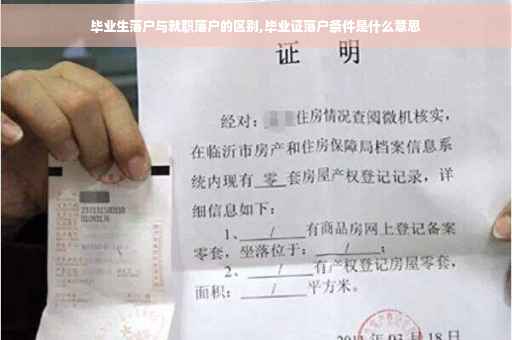 毕业生落户与就职落户的区别,毕业证落户条件是什么意思
证 明
经对: 住房情况查阅微机核实,
在临沂市房产和住房保障局档案信息系
统内现有 零 套房屋产权登记记录,详
细信息如下:
1、 / 有商品房网上登记备案
零套,坐落位于: / ;
2、 / 有产权登记房屋零套,
面积: / 平方米。
月 18 日